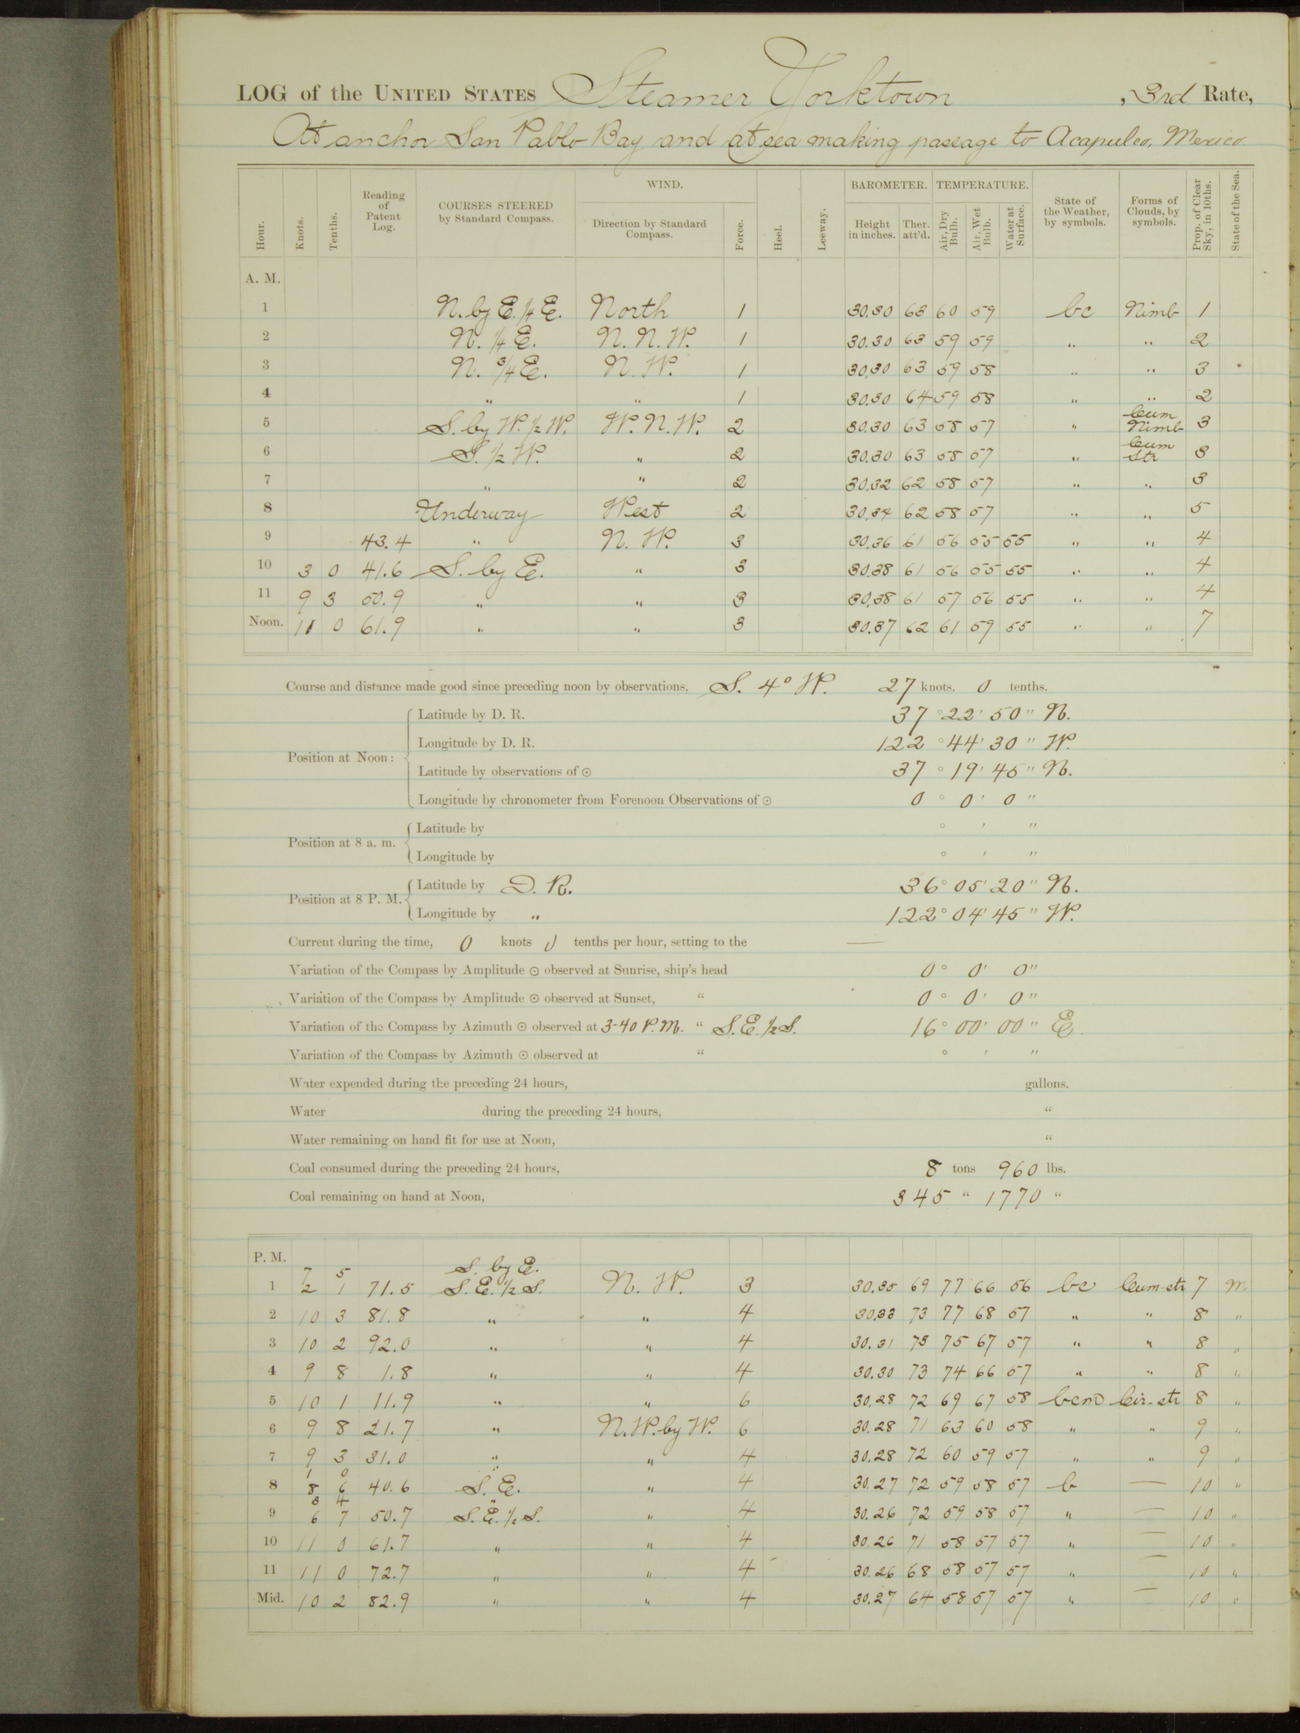 LOG of the UNITED STATES Steamer Yorktown , 3rd Rate,
At anchor San Pablo Bay and at sea making passage to Acapulco, Mexico
Hour. Knots. Tenths. Reading of Patent Log. COURSES STEERED by Standard Compass. WIND. Direction by Standard Compass. Force. Heel. Leeway. BAROMETER. Height in inches. Ther. att'd. TEMPERATURE. Air, Dry Bulb. Air, Wet Bulb. Water at Surface. State of the Weather, by symbols. Forms of Clouds, by symbols. Prop. of Clear Sky, in 10ths. State of the Sea.
A. M.
1 N. by E. 1/4 E. North 1 30.30 63 60 59 bc Nimb 1
2 N. 1/4 E. N. N. W. 1 30.30 63 59 59 " " 2
3 N. 3/4 E. N. W. 1 30.30 63 59 58 " " 3
4 " " 1 30.30 64 59 58 " " 2
5 S. by W. 1/2 W. W. N. W. 2 30.30 63 58 57 " Cum Nimb 3
6 S. 1/2 W. " 2 30.30 63 58 57 " Cum Str 3
7 " " 2 30.32 62 58 57 " " 3
8 Underway West 2 30.34 62 58 57 " " 5
9 43.4 " N. W. 3 30.36 61 56 55 55 " " 4
10 3 0 41.6 S. by E. " 3 30.38 61 56 55 55 " " 4
11 9 3 50.9 " " 3 30.38 61 57 56 55 " " 4
Noon. 11 0 61.9 " " 3 30.37 62 61 59 55 " " 7
Course and distance made good since preceding noon by observations, S. 4° W. 27 knots. 0 tenths.
Position at Noon:
Latitude by D. R. 37 ° 22 ' 50 " N.
Longitude by D. R. 122 ° 44 ' 30 " W.
Latitude by observations of ☉ 37 ° 19 ' 45 " N.
Longitude by chronometer from Forenoon Observations of ☉ 0 ° 0 ' 0 "
Position at 8 a. m.
Latitude by ° ' "
Longitude by ° ' "
Position at 8 P. M.
Latitude by D. R. 36 ° 05 ' 20 " N.
Longitude by " 122 ° 04 ' 45 " W.
Current during the time, 0 knots 0 tenths per hour, setting to the —
Variation of the Compass by Amplitude ☉ observed at Sunrise, ship's head 0 ° 0 ' 0 "
Variation of the Compass by Amplitude ☉ observed at Sunset, " 0 ° 0 ' 0 "
Variation of the Compass by Azimuth ☉ observed at 3-40 P.M. " S.E. 1/2 S. 16 ° 00 ' 00 " E.
Variation of the Compass by Azimuth ☉ observed at " ° ' "
Water expended during the preceding 24 hours, gallons.
Water during the preceding 24 hours, "
Water remaining on hand fit for use at Noon, "
Coal consumed during the preceding 24 hours, 8 tons 960 lbs.
Coal remaining on hand at Noon, 345 " 1770 "
P. M.
7 5 S. by E.
1 2 1 71.5 S. E. 1/2 S. N. W. 3 30.35 69 77 66 56 bc Cum-str 7 m
2 10 3 81.8 " " 4 30.33 73 77 68 57 " " 8 "
3 10 2 92.0 " " 4 30.31 73 75 67 57 " " 8 "
4 9 8 1.8 " " 4 30.30 73 74 66 57 " " 8 "
5 10 1 11.9 " " 6 30.28 72 69 67 58 bcm Cir-str 8 "
6 9 8 21.7 " N. W. by W. 6 30.28 71 63 60 58 " " 9 "
7 9 3 31.0 " " 4 30.28 72 60 59 57 " " 9 "
1 0 "
8 8 6 40.6 S. E. " 4 30.27 72 59 58 57 b — 10 "
3 4 "
9 6 7 50.7 S. E. 1/2 S. " 4 30.26 72 59 58 57 " — 10 "
10 11 0 61.7 " " 4 30.26 71 58 57 57 " — 10 "
11 11 0 72.7 " " 4 30.26 68 58 57 57 " — 10 "
Mid. 10 2 82.9 " " 4 30.27 64 58 57 57 " — 10 "